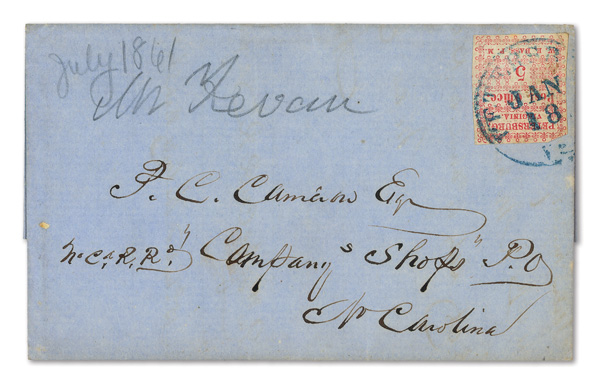 July 1861
W Kevan
W. E. BASS, P. M.
5
PETERSBURG
VIRGINIA
JAN
18
P. C. Cameron Esq
N.C. R. Rd "Company's Shops" P.O
No Carolina